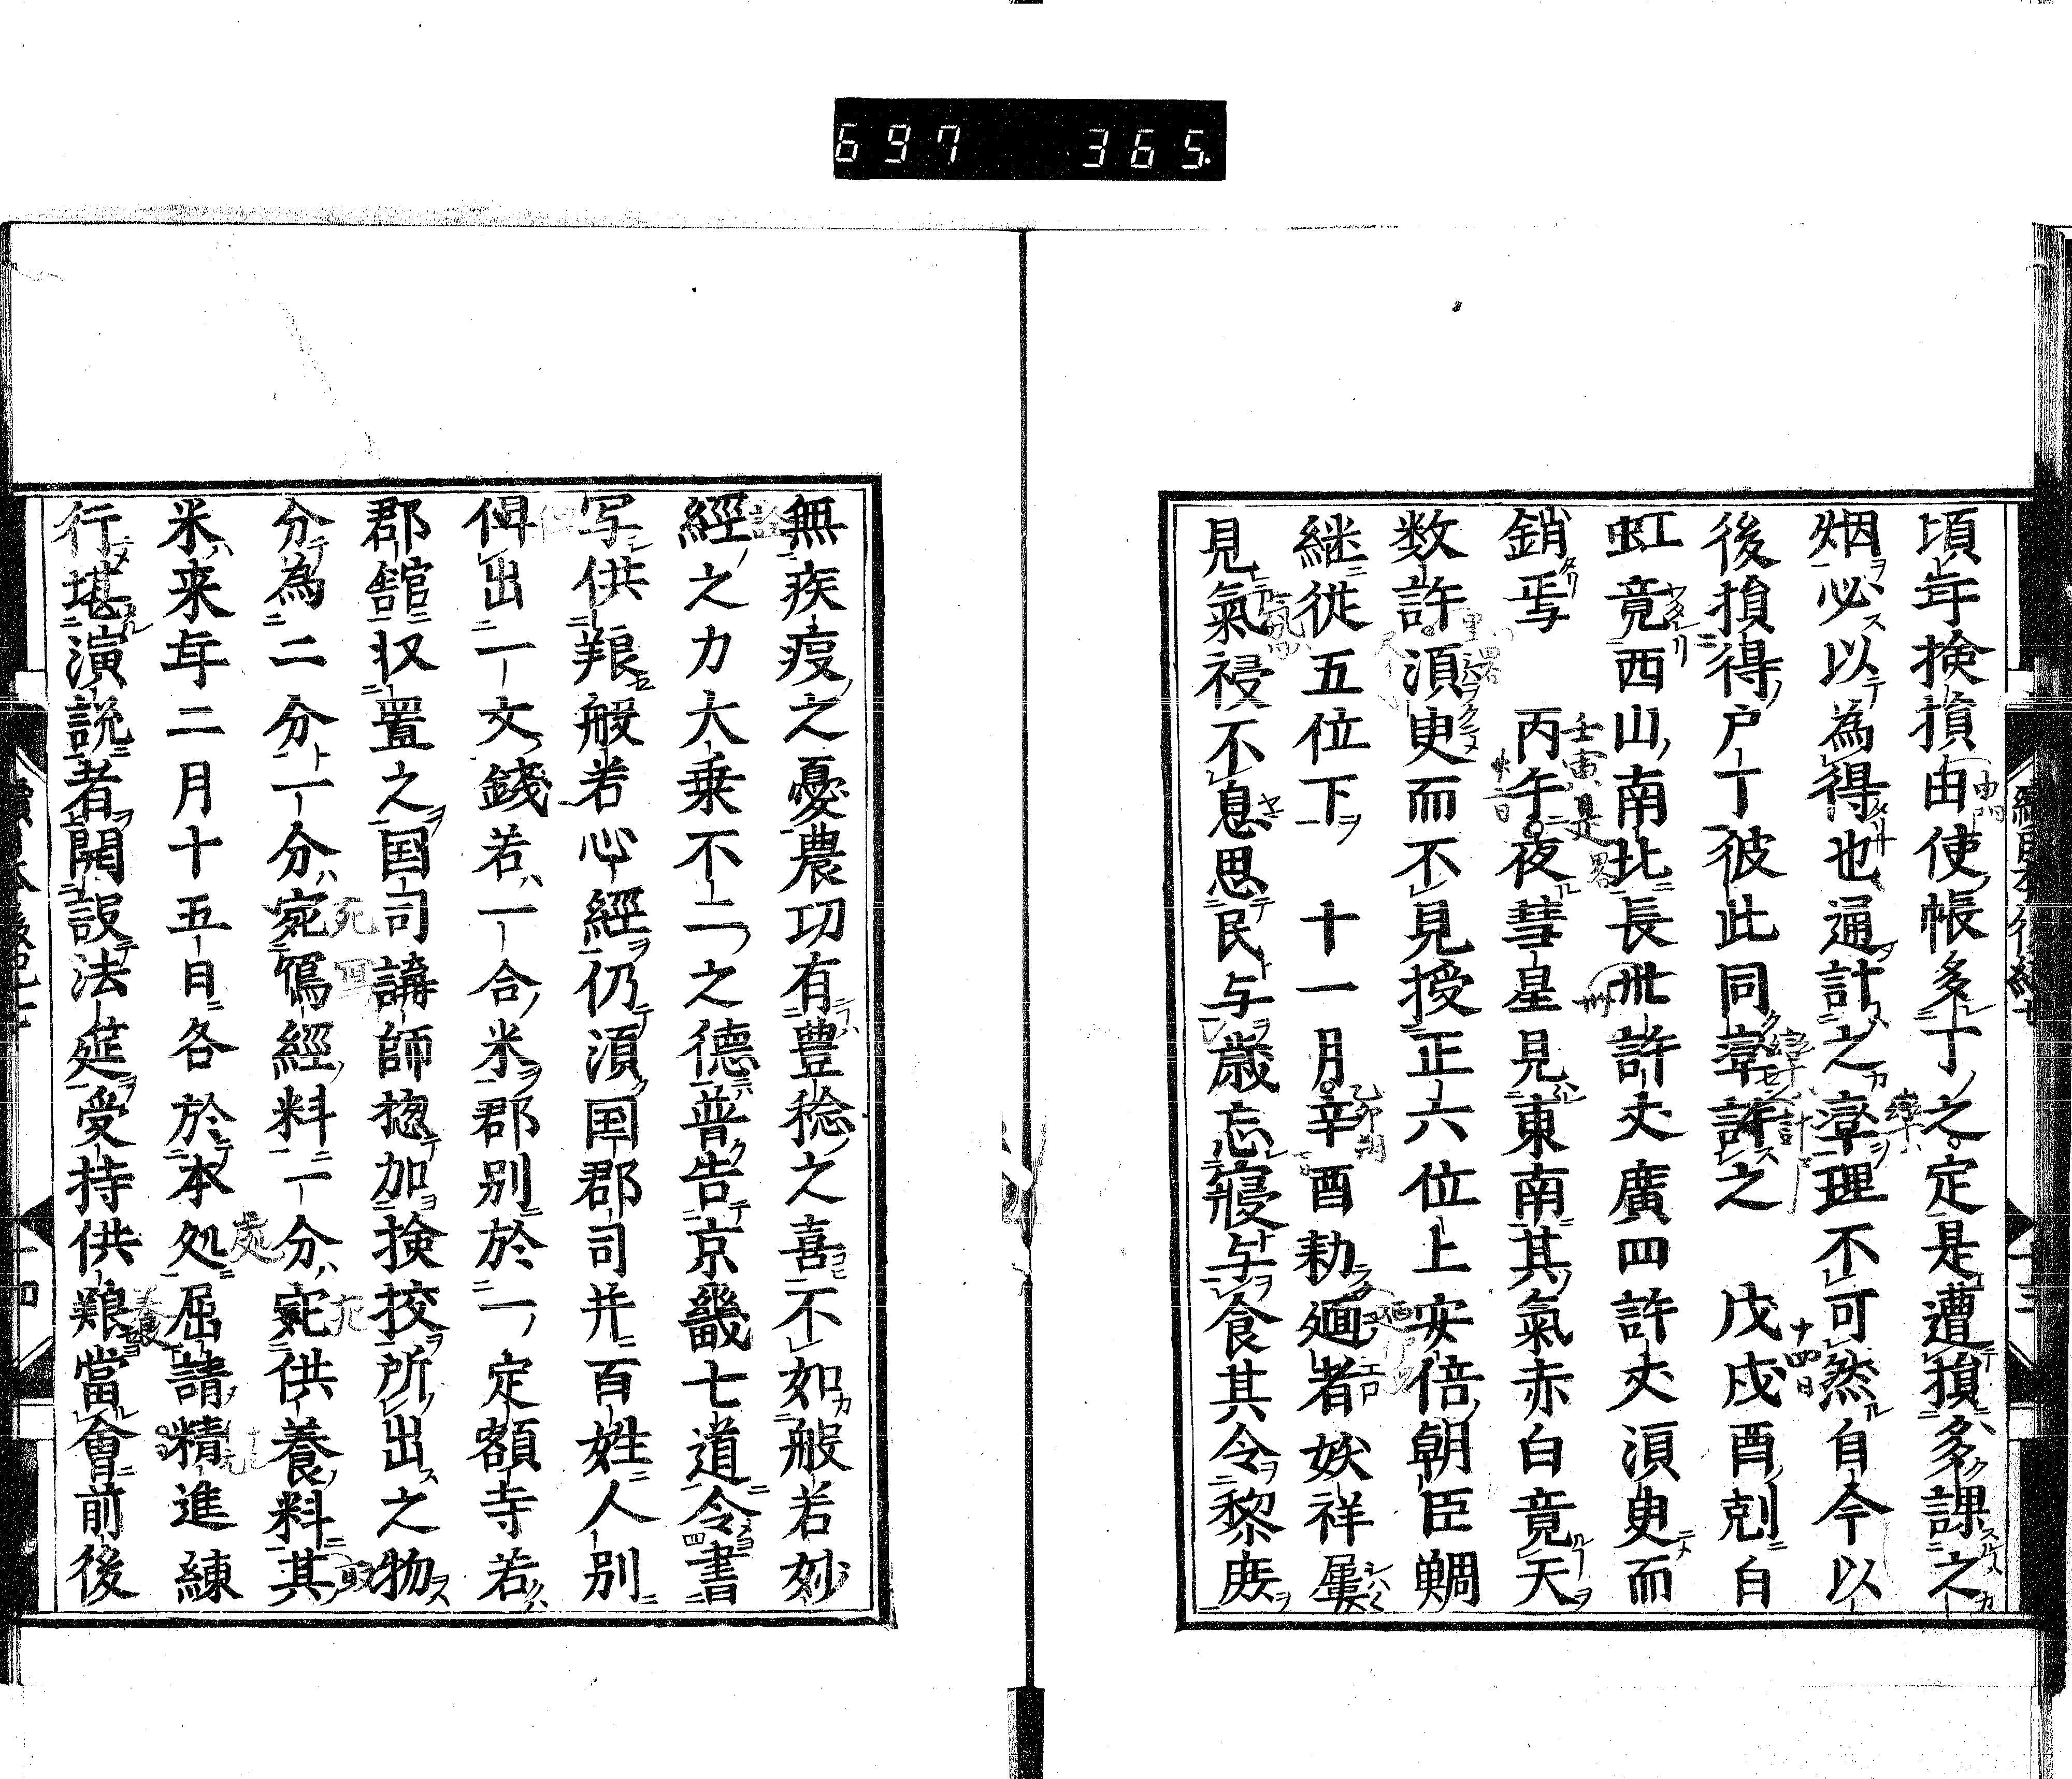 697 365.
頃年検損由使帳多丁之定是遭損多課之
烟必以為得也通計之率理不可然自今以
後損得戸丁彼此同率許之　戊戌酉剋白
虹竟西山南北長卅許丈廣四許丈須臾而
銷焉　丙午夜彗星見東南其氣赤白竟天
数許須臾而不見授正六位上安倍朝臣鯛
継従五位下　十一月辛酉勅廼者妖祥屢
見氣祲不息思民与歳忘寢与食其令黎庶
無疾疫之憂農功有豊稔之喜不如般若妙
經之力大乗不二之德普告京畿七道令書
写供養般若心經仍須国郡司并百姓人別
俾出一文錢若一合米郡別於一定額寺若
郡舘収置之国司講師捴加検挍所出之物
分為二分一分宛寫經料一分宛供養料其
米来年二月十五日各於本処屈請精進練
行堪演説者開設法筵受持供養當會前後